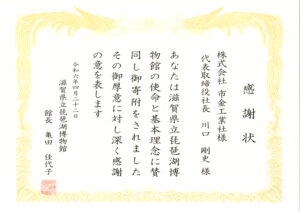 感謝状
株式会社 市金工業社様
代表取締役社長 川口 剛史 様
あなたは滋賀県立琵琶湖博
物館の使命と基本理念に賛
同し御寄附をされました
その御厚意に対し深く感謝
の意を表します
令和六年四月二十二日
滋賀県立琵琶湖博物館
館長 亀田 佳代子